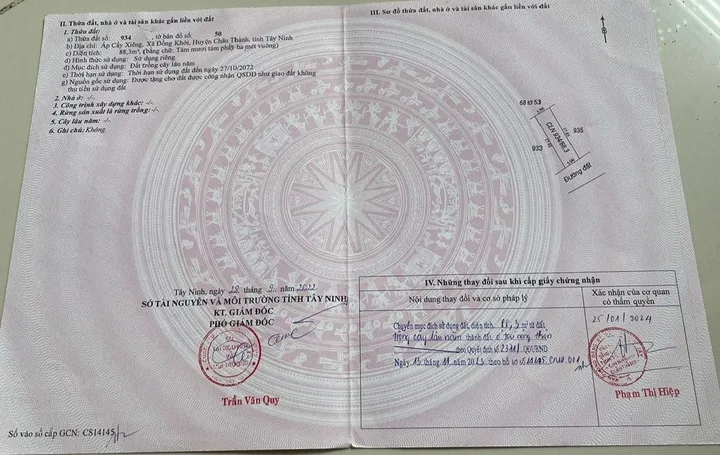 II. Thửa đất, nhà ở và tài sản khác gắn liền với đất
1. Thửa đất:
a) Thửa đất số: 934 , tờ bản đồ số: 50
b) Địa chỉ: Ấp Cầy Xiêng, Xã Đồng Khởi, Huyện Châu Thành, tỉnh Tây Ninh
c) Diện tích: 88,3m² (bằng chữ: Tám mươi tám phẩy ba mét vuông)
d) Hình thức sử dụng: Sử dụng riêng
đ) Mục đích sử dụng: Đất trồng cây lâu năm
e) Thời hạn sử dụng: Thời hạn sử dụng đất đến ngày 27/10/2072
g) Nguồn gốc sử dụng: Được tặng cho đất được công nhận QSDĐ như giao đất không
thu tiền sử dụng đất
2. Nhà ở: -/-
3. Công trình xây dựng khác: -/-
4. Rừng sản xuất là rừng trồng: -/-
5. Cây lâu năm: -/-
6. Ghi chú: Không
Tây Ninh, ngày 28 tháng 9 năm 2022
SỞ TÀI NGUYÊN VÀ MÔI TRƯỜNG TỈNH TÂY NINH
KT. GIÁM ĐỐC
PHÓ GIÁM ĐỐC
Trần Văn Quy
Số vào sổ cấp GCN: CS14145
III. Sơ đồ thửa đất, nhà ở và tài sản khác gắn liền với đất
68 tờ 53
933
CLN 934/88.3
935
Đường đất
IV. Những thay đổi sau khi cấp giấy chứng nhận
Nội dung thay đổi và cơ sở pháp lý
Xác nhận của cơ quan
có thẩm quyền
Chuyển mục đích sử dụng đất, diện tích 88,3 m² từ đất
trồng cây lâu năm thành đất ở tại nông thôn
theo Quyết định số 2311/ QĐUBND
Ngày 15 tháng 11 năm 2023 theo hồ sơ số
25/01/2024
Phạm Thị Hiệp